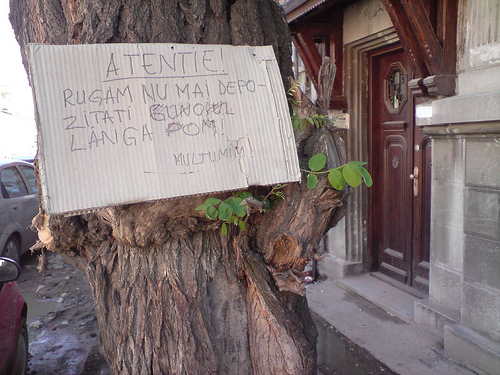 ATENTIE!
RUGAM NU MAI DEPO-
ZITATI GUNOIUL
LANGA POM!
MULTUMIM!